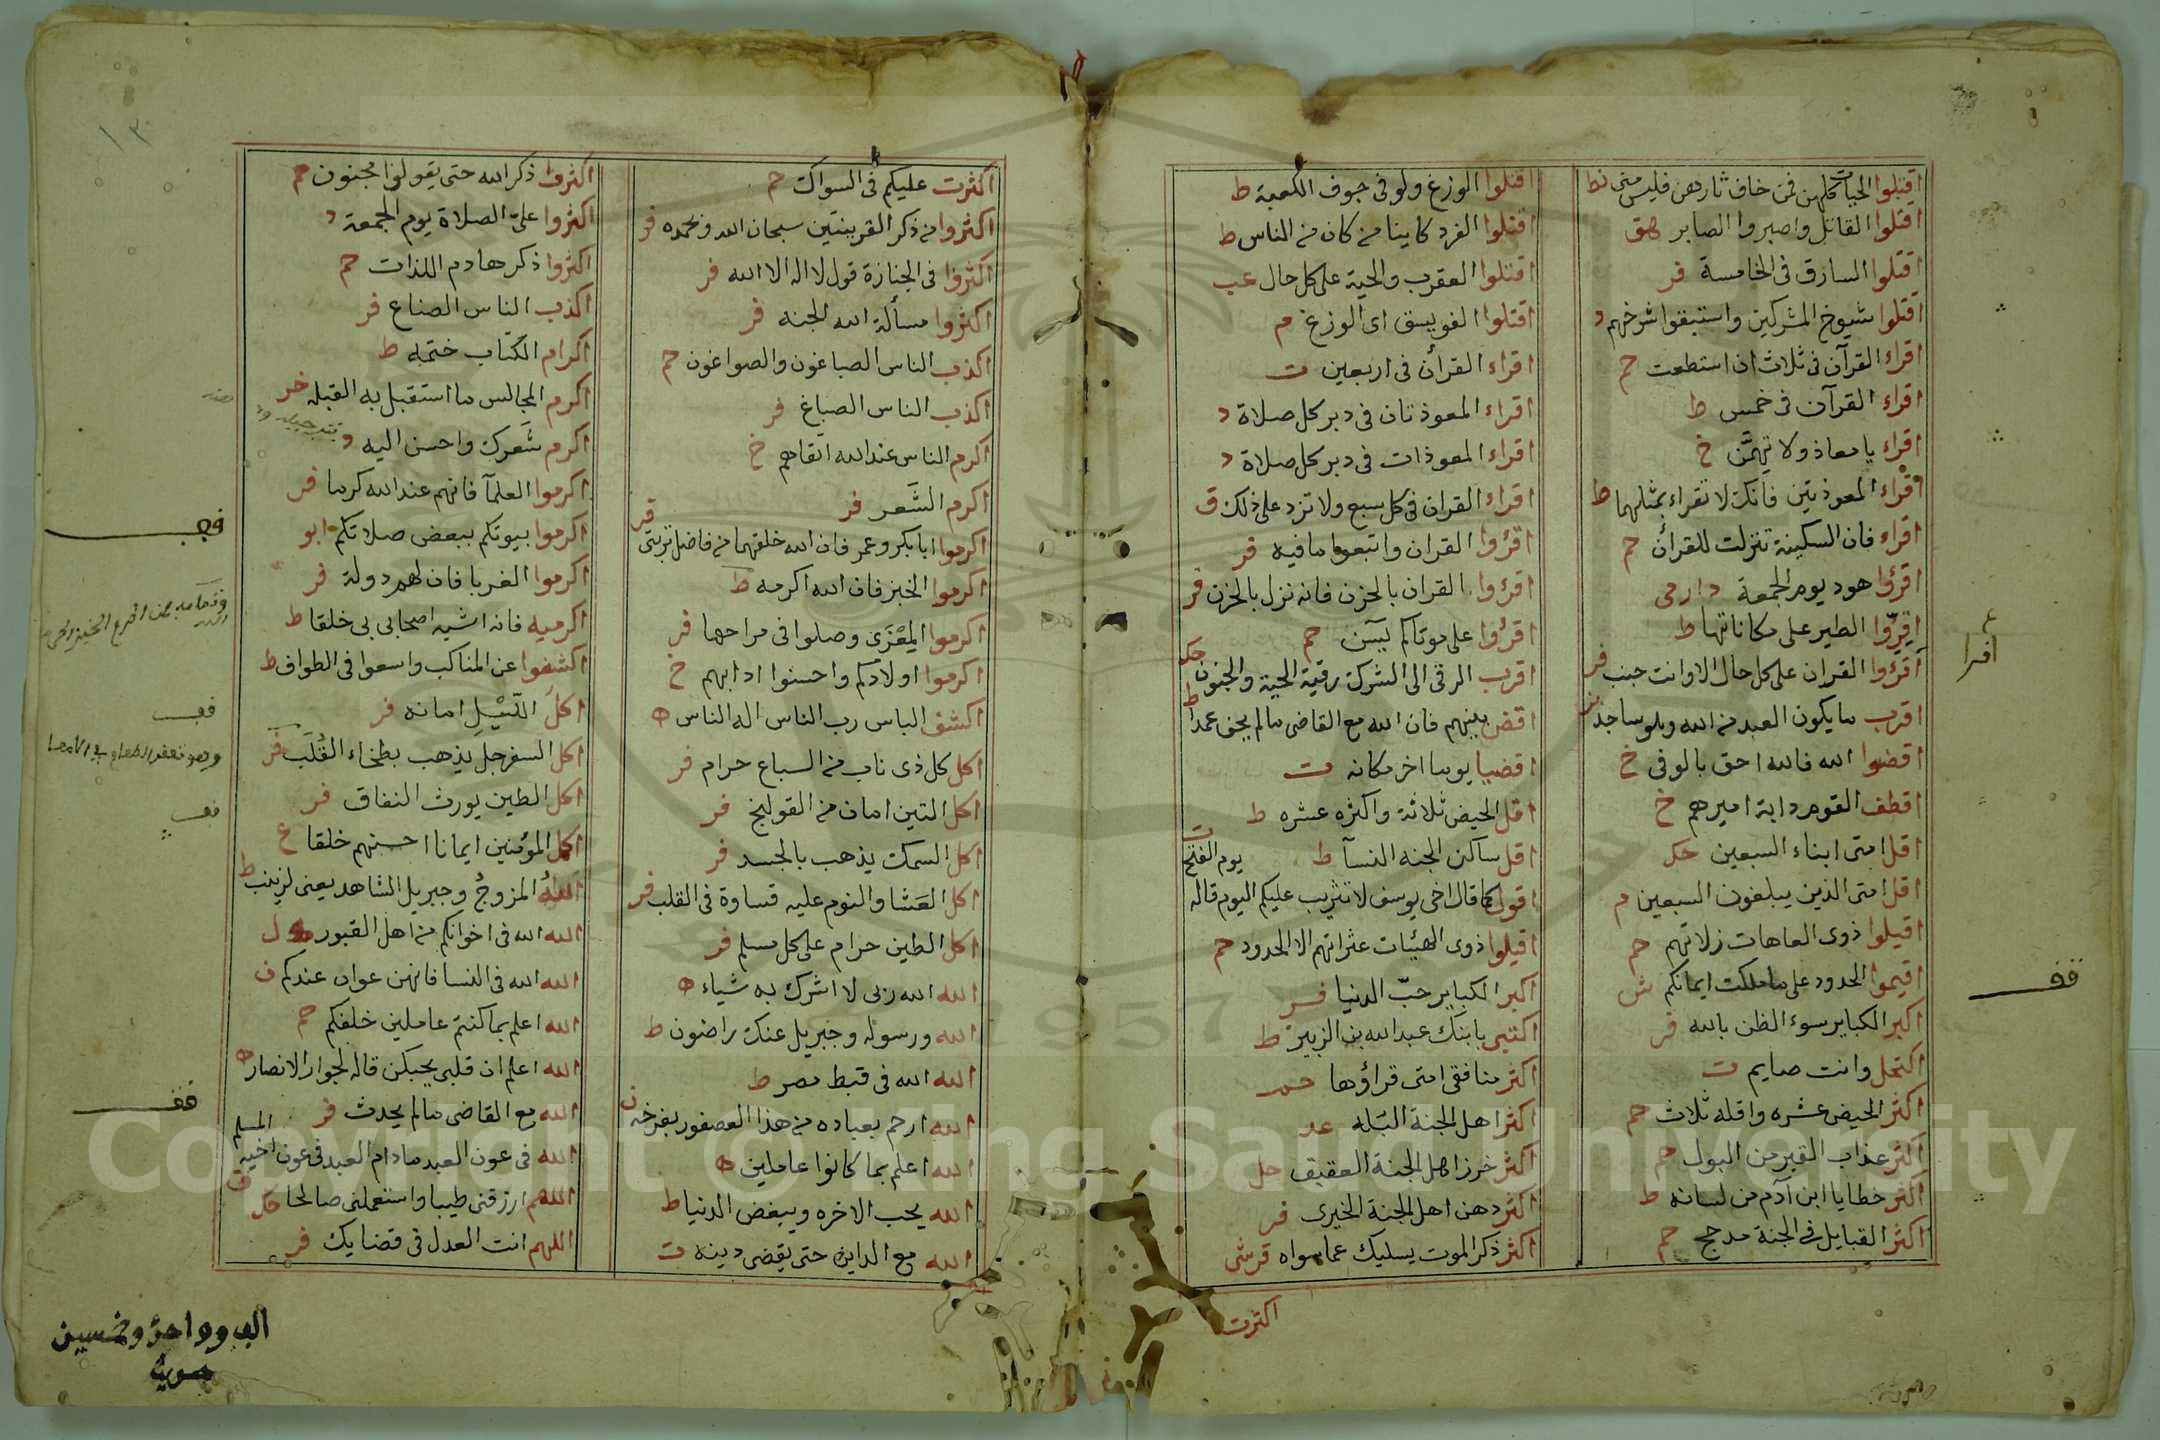 اقتلوا الحيات كلهن فمن خاف ثارهن فليس منى نط
اقتلوا القاتل واصبروا الصابر هق
اقتلوا السارق فى الخامسة فر
اقتلوا شيوخ المشركين واستبقوا شرخهم د
اقراء القرآن فى ثلاث ان استطعت حم
اقراء القرآن فى خمس ط
اقراء يا معاذ ولا تهمَّن خ
اقراء المعوذتين فانك لا تقراء بمثلهما ط
اقراء فان السكينة تنزلت للقران حم
اقرؤا هود يوم الجمعة دارمى
اقِرّوا الطير على مكاناتها ط
اقرؤا القران على كل حال الا وانت جنب فر
اقرب ما يكون العبد من الله وهو ساجد
اقضوا الله فالله احق بالوفى خ
اقطف القوم دابة اميرهم خ
اقل امتى ابناء السبعين حك
اقل امتى الذين يبلغون السبعين م
اقيلوا ذوى العاهات زلاتهم حم
اقيموا الحدود على ما ملكت ايمانكم ش
اكبر الكباير سوء الظن بالله فر
اكتحل وانت صايم ت
اكثر الحيض عشره واقله ثلاث حم
اكثر عذاب القبر من البول حم
اكثر خطايا ابن آدم من لسانه ط
اكثر القبايل فى الجنة مدحج حم
اقتلوا الوزغ ولو فى جوف الكعبة ط
اقتلوا الفرد كاينا من كان من الناس ط
اقتلوا العقرب والحية على كل حال عب
اقتلوا الفويسق اى الوزغ م
اقراء القرأن فى اربعين ت
اقراء المعوذتان فى دبر كل صلاة د
اقراء المعوذات فى دبر كل صلاة د
اقراء القران فى كل سبع ولا تزد على ذلك ق
اقرؤا القران واتبعوا ما فيه فر
اقرؤا القران بالحزن فانه نزل بالحزن فر
اقرؤا على موتاكم يسَن حم
اقرب الرقى الى الشرك رقية الحية والجنون حك
اقض بينهم فان الله مع القاضى ما لم يحف عمدا ط
اقضيا يوما اخر مكانه ت
اقل الحيض ثلاثة واكثره عشره ط
اقل ساكن الجنه النسآ ط
يوم الفتح ت
اقول كما قال اخى يوسف لا تثريب عليكم اليوم قاله
اقيلوا ذوى الهئيات عثراتهم الا الحدود حم
اكبر الكباير حبّ الدنيا فر
اكتنى بابنك عبد الله بن الزبير ط
اكثر منافقى امتى قراؤها حم
اكثر اهل الجنة البَله عد
اكثر خرز اهل الجنة العقيق حل
اكثر دهن اهل الجنة الخيرى فر
اكثر ذكر الموت يسليك عما سواه قرشى
اكثرت
اقرا
قف
اكثرت عليكم فى السواك حم
اكثروا من ذكر القرينتين سبحان الله وبحمده فر
اكثروا فى الجنازة قول لا اله الا الله فر
اكثروا مسألة الله الجنه فر
اكذب الناس الصباغون والصواغون حم
اكذب الناس الصباغ فر
اكرم الناس عند الله اتقاهم خ
اكرم الشَّعر فر
اكرموا ابا بكر وعمر فان الله خلقهما من فاضل تربتى فر
اكرموا الخبز فان الله اكرمه ط
اكرموا المِعْزَى وصلوا فى مراحها فر
اكرموا اولادكم واحسنوا ادابهم خ
اكشف الباس رب الناس اله الناس ه
اكل كل ذى ناب من السباع حرام فر
اكل التين امان من القولنج فر
اكل السمك يذهب بالجسد فر
اكل العَشا والنوم عليه قساوة فى القلب فر
اكل الطين حرام على كل مسلم فر
الله الله ربى لا اشرك به شياء ه
الله ورسوله وجبريل عنك راضون ط
الله الله فى قبط مصر ط
الله ارحم بعباده من هذا العصفور بفرخه ن
الله اعلم بما كانوا عاملين ه
الله يحب الاخره ويبغض الدنيا ط
الله مع الداين حتى يقضى دينه ت
اكثروا ذكر الله حتى يقولوا مجنون حم
اكثروا علىّ الصلاة يوم الجمعة د
اكثروا ذكر هادم اللذات حم
اكذب الناس الصناع فر
اكرام الكتاب ختمه ط
اكرم المجالس ما استقبل به القبلة خر
اكرم شَعرك واحسن اليه د
اكرموا العلمآ فانهم عند الله كرما فر
اكرموا بيوتكم ببعض صلاتكم ابو
اكرموا الغربا فان لهم دولة فر
اكرميه فانه اشبه اصحابى بى خلقا ط
اكشفوا عن المناكب واسعوا فى الطواف ط
اكل اللّيل امانه فر
اكل السفرجل يذهب بطخاء القلب فر
اكل الطين يورث النفاق فر
اكمل المؤمنين ايمانا احسنهم خلقا ع
اللهُ المزوجُ وجبريل الشاهد يعنى لزينب ط
الله الله فى اخوانكم من اهل القبور ل
الله الله فى النسا فانهن عوان عندكم ف
الله اعلم بما كنتم عاملين خلفكم حم
الله اعلم ان قلبى يحبكن قاله لجوار الانصار ه
الله مع القاضى ما لم يحدث فر
المسلم
الله فى عون العبد ما دام العبد فى عون اخيه ف
اللهم ارزقنى طيبا واستعملنى صالحا حك
اللهم انت العدل فى قضايك فر
قف
قف
قف
قف
الف وواحد وخمسين
١٣
Copyright © King Saud University
1957